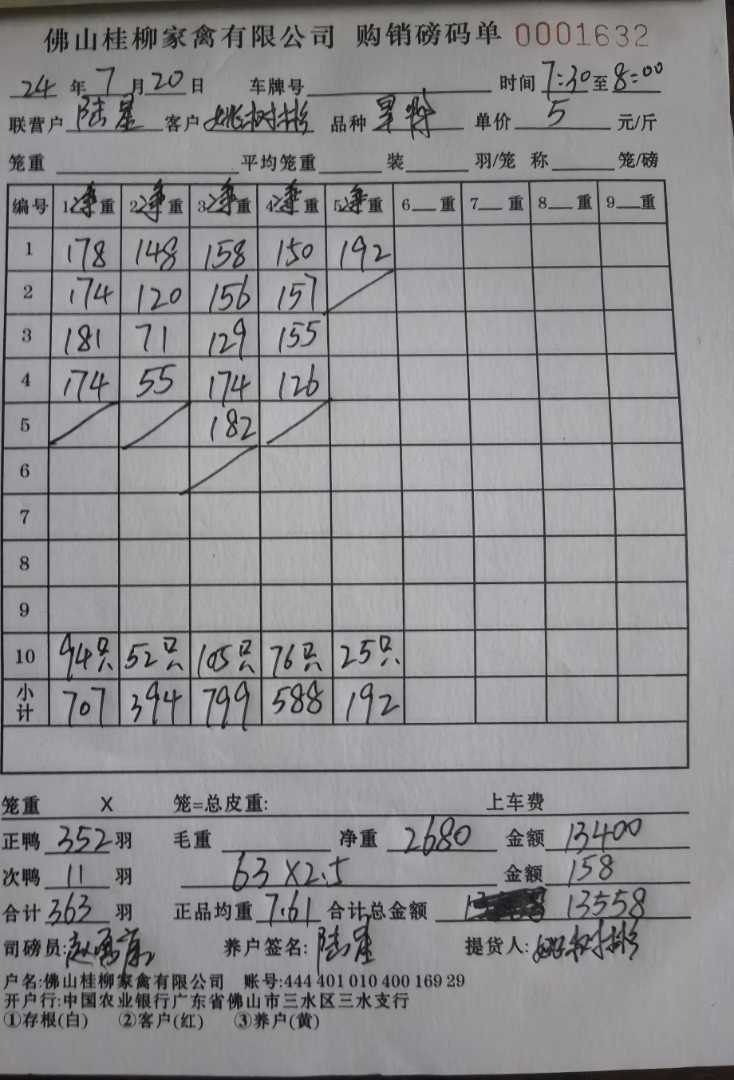 佛山桂柳家禽有限公司 购销磅码单 0001632
24 年 7 月 20 日 车牌号 时间 7:30 至 8:00
联营户 陆星 客户 姚树彬 品种 单价 5 元/斤
笼重 平均笼重 装 羽/笼 称 笼/磅
编号 1净重 2净重 3净重 4净重 5净重 6 重 7 重 8 重 9 重
1 178 148 158 150 192
2 174 120 156 157
3 181 71 129 155
4 174 55 174 126
5 182
6
7
8
9
10 94只 52只 105只 76只 25只
小计 707 394 799 588 192
笼重 X 笼=总皮重: 上车费
正鸭 352 羽 毛重 净重 2680 金额 13400
次鸭 11 羽 63 X 2.5 金额 158
合计 363 羽 正品均重 7.61 合计总金额 13558
司磅员: 养户签名: 陆星 提货人: 姚树彬
户名:佛山桂柳家禽有限公司 账号:444 401 010 400 169 29
开户行:中国农业银行广东省佛山市三水区三水支行
①存根(白) ②客户(红) ③养户(黄)